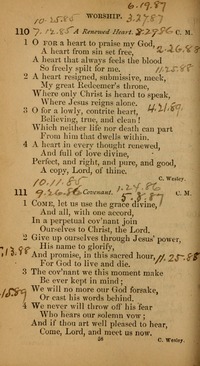 6.19.87
WORSHIP.
10-25.85 3.27.87
110 7.12.85 A Renewed Heart. 8.27.86 C. M.
1 O FOR a heart to praise my God,
A heart from sin set free, 2-26-88
A heart that always feels the blood
So freely spilt for me. 11.25.88
2 A heart resigned, submissive, meek,
My great Redeemer's throne,
Where only Christ is heard to speak,
Where Jesus reigns alone.
3 O for a lowly, contrite heart, 4.21.89
Believing, true, and clean!
Which neither life nor death can part
From him that dwells within.
4 A heart in every thought renewed,
And full of love divine,
Perfect, and right, and pure, and good,
A copy, Lord, of thine.
C. Wesley.
10.11.85 1.24.86
111 9.26.86 Covenant. 5.8.87 C. M.
1 COME, let us use the grace divine,
And all, with one accord,
In a perpetual cov'nant join
Ourselves to Christ, the Lord.
2 Give up ourselves through Jesus' power,
His name to glorify,
And promise, in this sacred hour, 11.25.88
For God to live and die.
3 The cov'nant we this moment make
Be ever kept in mind;
We will no more our God forsake,
Or cast his words behind.
4 We never will throw off his fear
Who hears our solemn vow;
And if thou art well pleased to hear,
Come, Lord, and meet us now.
C. Wesley.